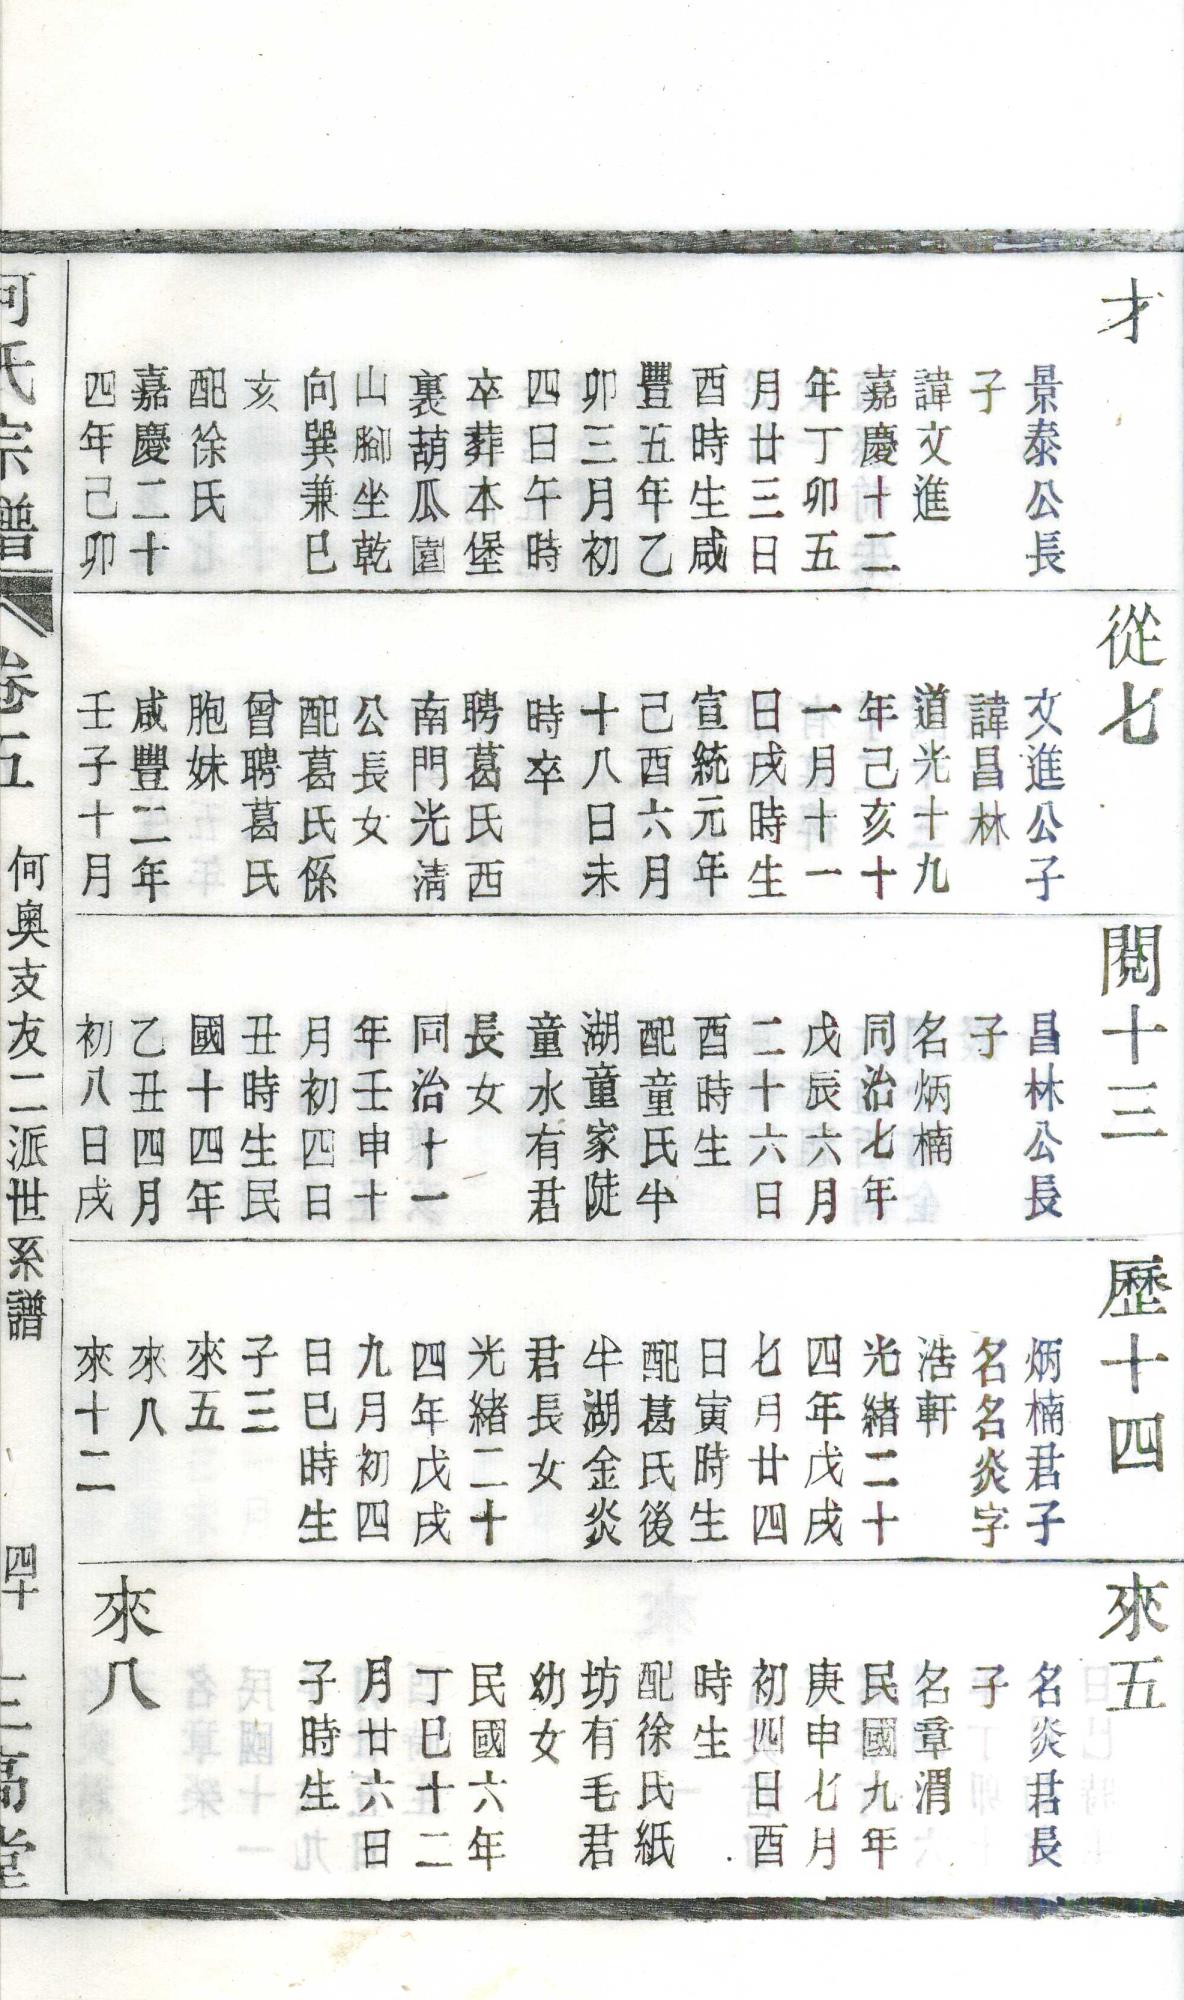 才
景泰公長
子
諱文進
嘉慶十二
年丁卯五
月廿三日
酉時生咸
豐五年乙
卯三月初
四日午時
卒葬本堡
裏葫瓜園
山腳坐乾
向巽兼巳
亥
配徐氏
嘉慶二十
四年己卯
從七
文進公子
諱昌林
道光十九
年己亥十
一月十一
日戌時生
宣統元年
己酉六月
十八日未
時卒
聘葛氏西
南門光清
公長女
配葛氏係
曾聘葛氏
胞妹
咸豐二年
壬子十月
閱十三
昌林公長
子
名炳楠
同治七年
戊辰六月
二十六日
酉時生
配童氏牛
湖童家陡
童水有君
長女
同治十一
年壬申十
月初四日
丑時生民
國十四年
乙丑四月
初八日戌
歷十四
炳楠君子
名名炎字
浩軒
光緒二十
四年戊戌
七月廿四
日寅時生
配葛氏後
牛湖金炎
君長女
光緒二十
四年戊戌
九月初四
日巳時生
子三
來五
來八
來十二
來五
名炎君長
子
名章渭
民國九年
庚申七月
初四日酉
時生
配徐氏紙
坊有毛君
幼女
民國六年
丁巳十二
月廿六日
子時生
來八
何氏宗譜
卷五
何奧支友二派世系譜
四十
三高堂